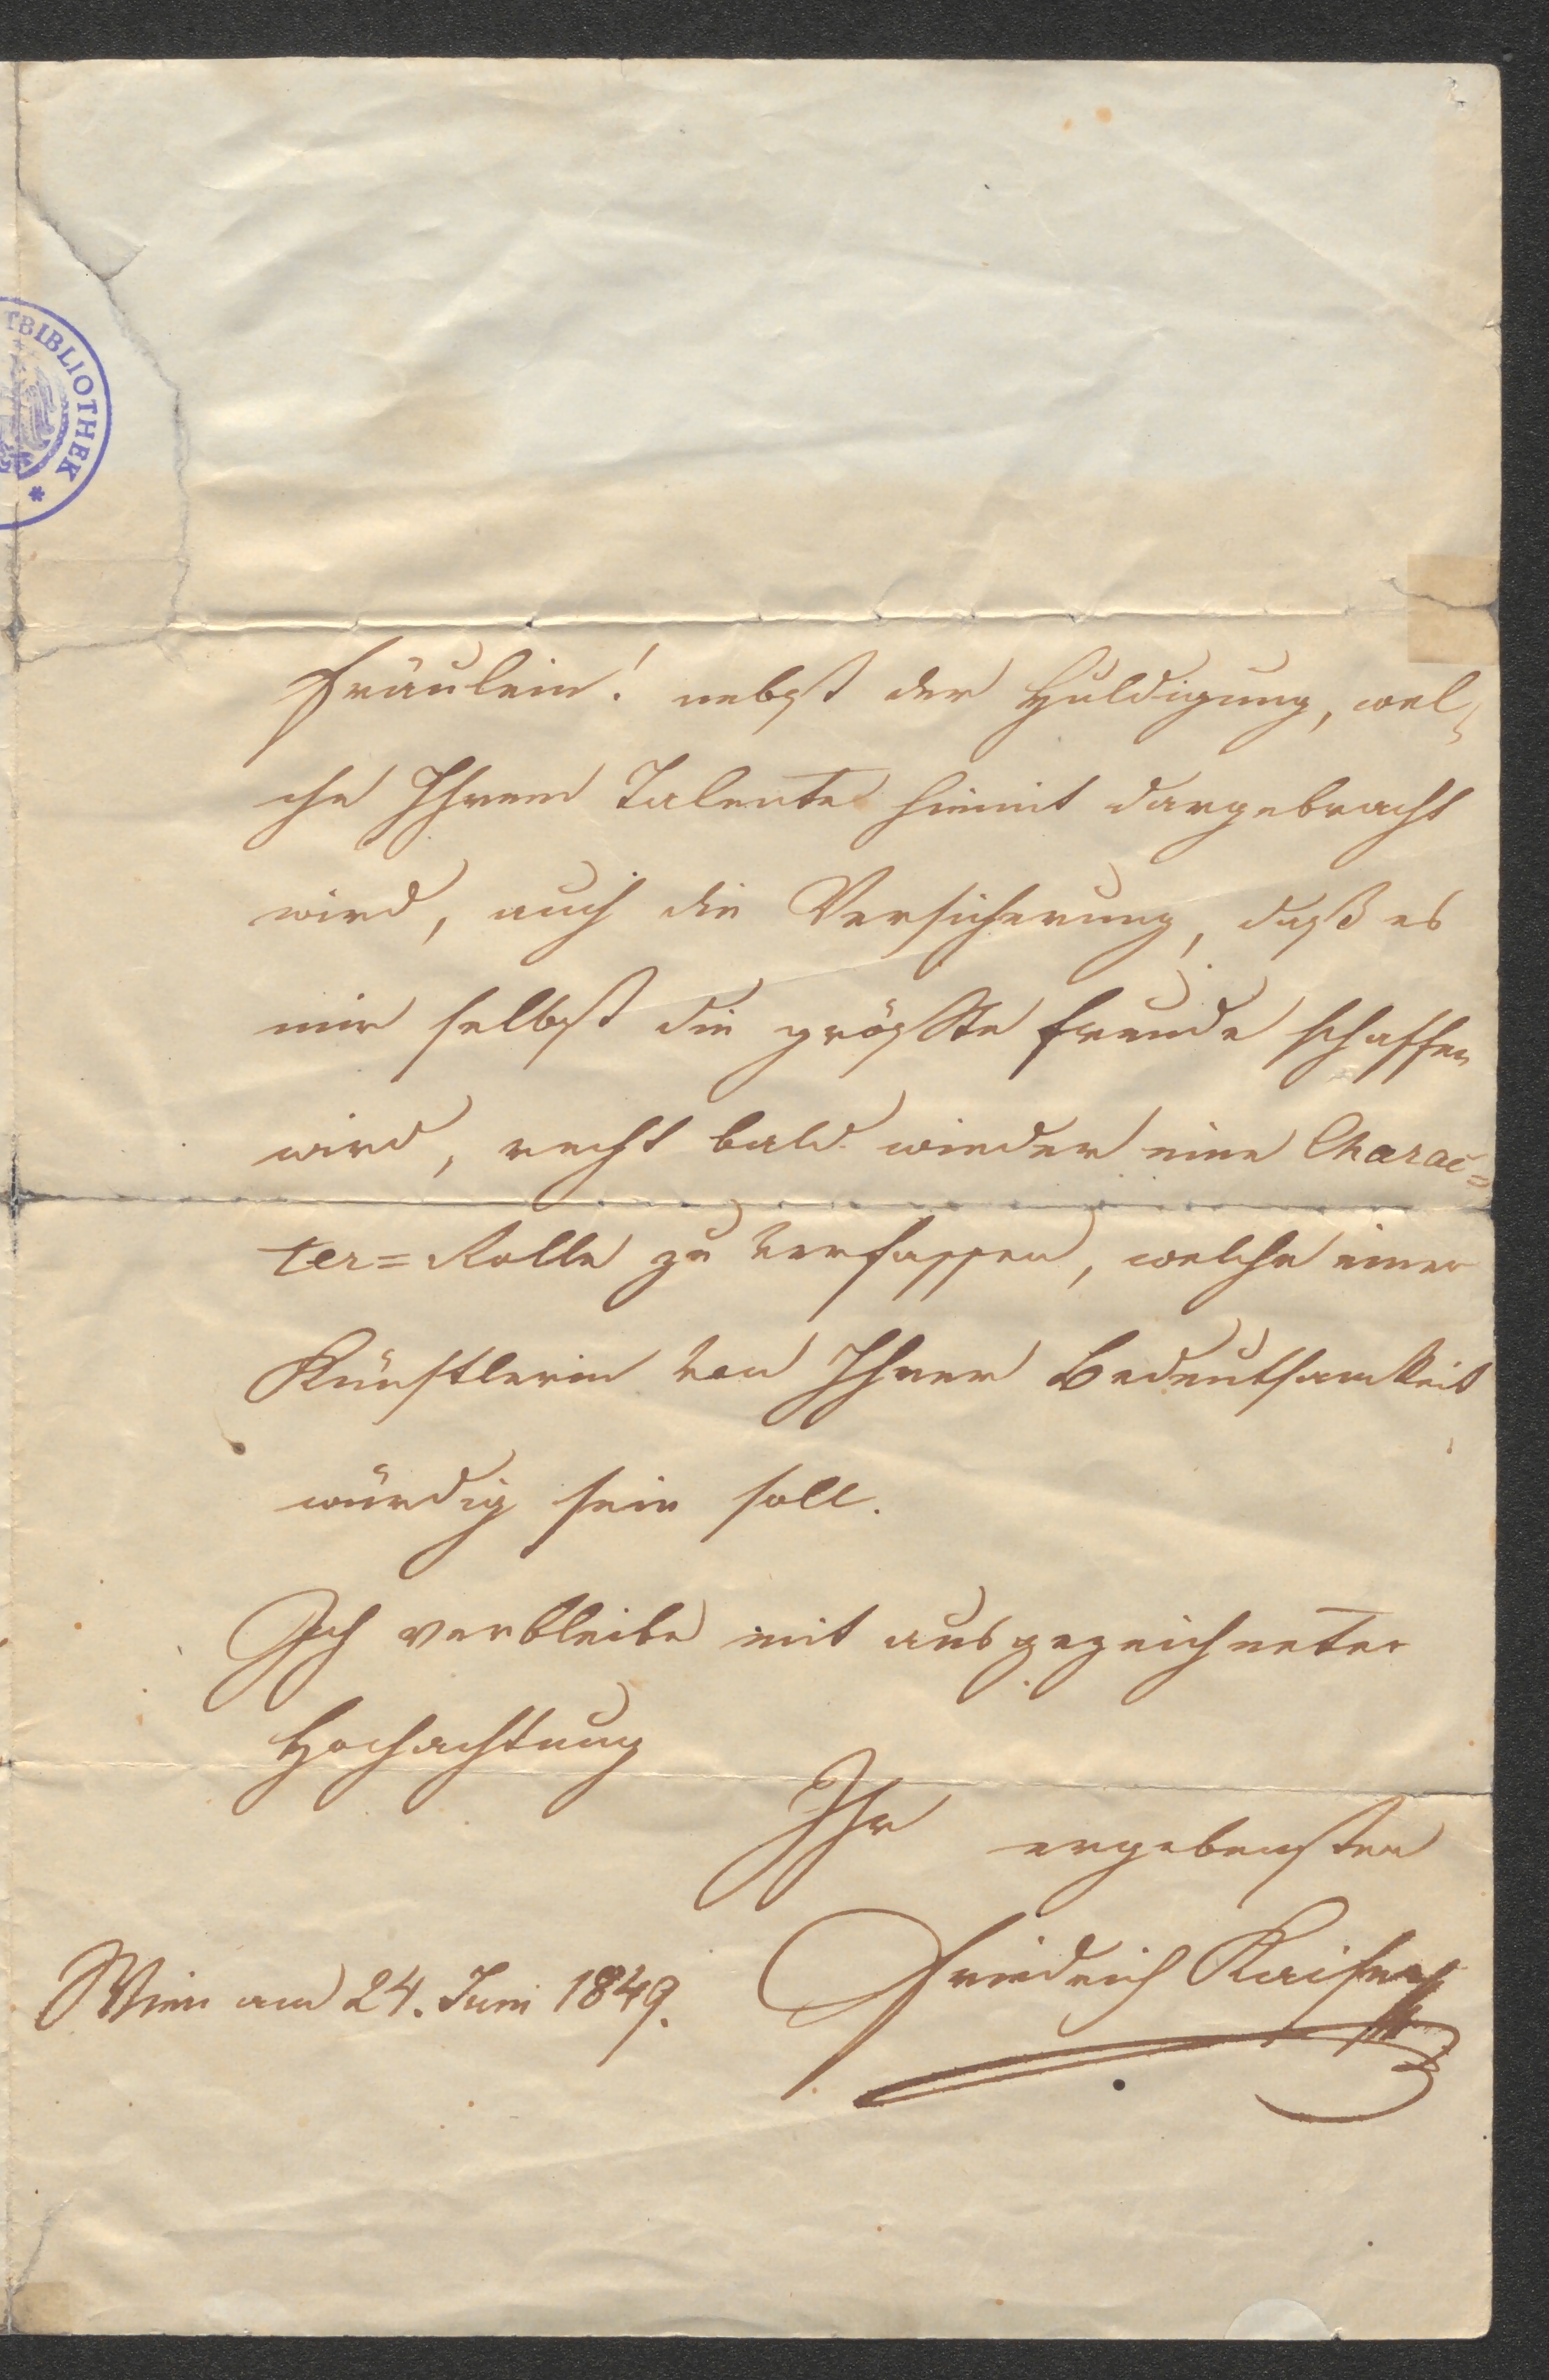 TBIBLIOTHEK *
Fräulein! nebst der Huldigung, wel-
che Ihrem Talente hiemit dargebracht
wird, auch die Versicherung, daß es
mir selbst die größte Freude schaffen
wird, recht bald wieder eine Charac=
ter=Rolle zu verfassen, welche einer
Künstlerin von Ihrer Bedeutsamkeit
würdig sein soll.
Ich verbleibe mit ausgezeichneter
Hochachtung
Ihr ergebenster
Friedrich Kaiser
Wien am 24. Juni 1849.